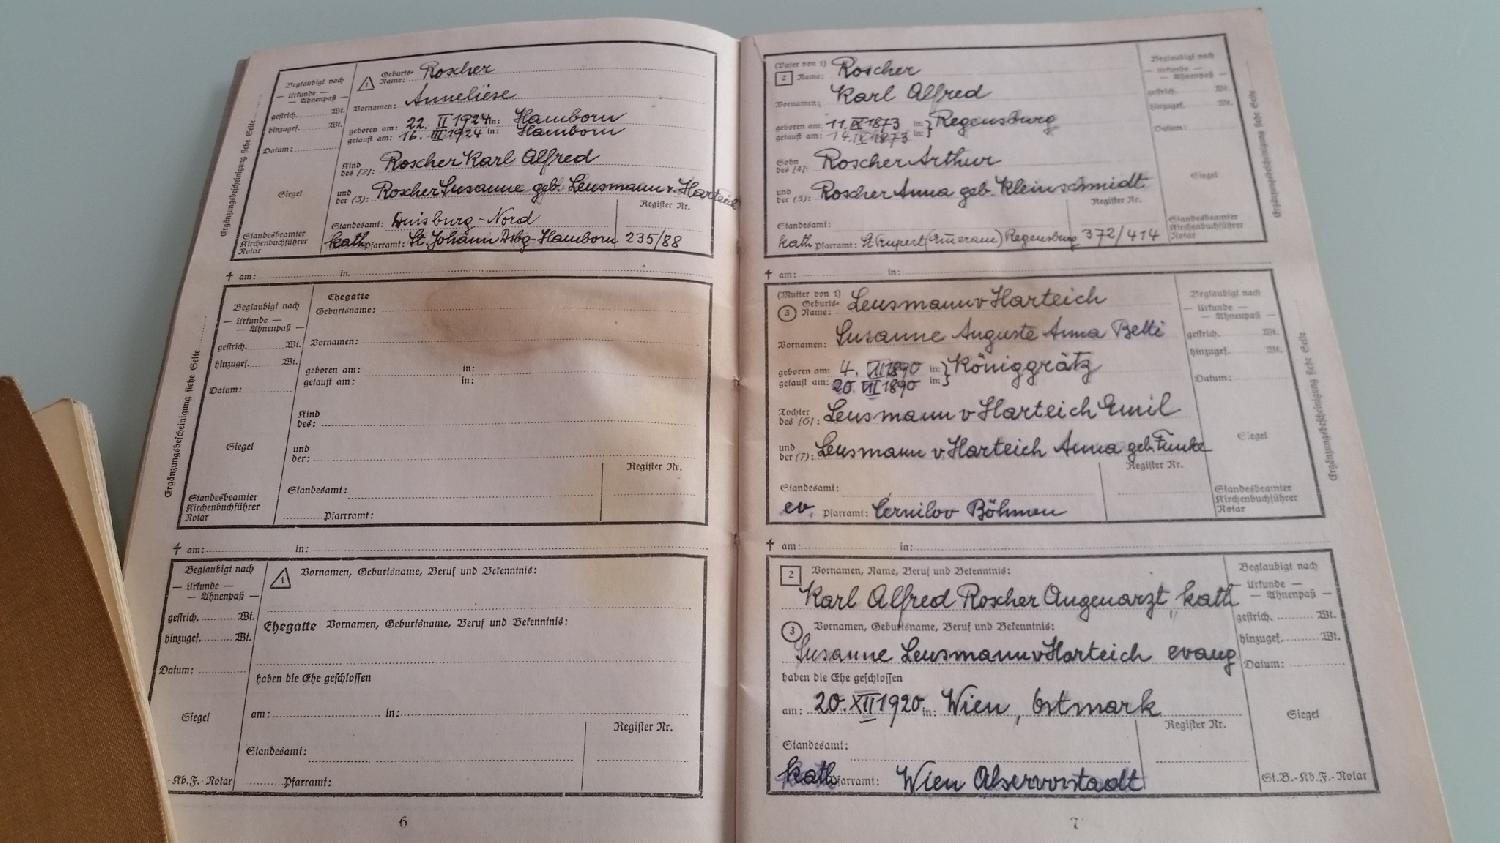 Beglaubigt nach
— Urkunde —
— Ahnenpaß —
gestrich. Wt.
hinzugef. Wt.
Datum:
Siegel
Standesbeamter
Kirchenbuchführer
Notar
Ergänzungsbescheinigung siehe Seite
1 Geburts-Name: Roscher
Vornamen: Anneliese
geboren am: 22. II 1924 in: Hamborn
getauft am: 16. III 1924 in: Hamborn
Kind des (2): Roscher Karl Alfred
und der (3): Roscher Susanne geb. Leusmann v Harteich
Register Nr.
Standesamt: Duisburg-Nord
kath Pfarramt: St. Johann Dsbg-Hamborn 235/88
✝ am: in:
Beglaubigt nach
— Urkunde —
— Ahnenpaß —
gestrich. Wt.
hinzugef. Wt.
Datum:
Siegel
Standesbeamter
Kirchenbuchführer
Notar
Ergänzungsbescheinigung siehe Seite
Ehegatte
Geburtsname:
Vornamen:
geboren am: in:
getauft am: in:
Kind des:
und der:
Register Nr.
Standesamt:
Pfarramt:
✝ am: in:
Beglaubigt nach
— Urkunde —
— Ahnenpaß —
gestrich. Wt.
hinzugef. Wt.
Datum:
Siegel
Kb.F.-Notar
1 Vornamen, Geburtsname, Beruf und Bekenntnis:
Ehegatte Vornamen, Geburtsname, Beruf und Bekenntnis:
haben die Ehe geschlossen
am: in:
Register Nr.
Standesamt:
Pfarramt:
6
(Vater von 1)
2 Name: Roscher
Vornamen: Karl Alfred
geboren am: 11. IX 1873 in: } Regensburg
getauft am: 14. IX 1873 in:
Sohn des (4): Roscher Arthur
und der (5): Roscher Anna geb. Kleinschmidt
Register Nr.
Standesamt:
kath Pfarramt: St Rupert (Emeram) Regensburg 372/414
Beglaubigt nach
— Urkunde —
— Ahnenpaß —
gestrich. Wt.
hinzugef. Wt.
Datum:
Siegel
Standesbeamter
Kirchenbuchführer
Notar
Ergänzungsbescheinigung siehe Seite
✝ am: in:
(Mutter von 1)
3 Geburts-Name: Leusmann v Harteich
Vornamen: Susanne Auguste Anna Betti
geboren am: 4. 1890 in } Königgrätz
getauft am: 20. 1890 in
Tochter des (6): Leusmann v Harteich Emil
und der (7): Leusmann v Harteich Anna geb. Funke
Register Nr.
Standesamt:
ev. Pfarramt: Cernilov Böhmen
Beglaubigt nach
— Urkunde —
— Ahnenpaß —
gestrich. Wt.
hinzugef. Wt.
Datum:
Siegel
Standesbeamter
Kirchenbuchführer
Notar
Ergänzungsbescheinigung siehe Seite
✝ am: in:
2 Vornamen, Name, Beruf und Bekenntnis:
Karl Alfred Roscher Augenarzt kath
3 Vornamen, Geburtsname, Beruf und Bekenntnis:
Susanne Leusmann v Harteich evang
haben die Ehe geschlossen
am: 20. XII 1920 in: Wien, Ostmark
Register Nr.
Standesamt:
kath Pfarramt: Wien Alservorstadt
Beglaubigt nach
— Urkunde —
— Ahnenpaß —
gestrich. Wt.
hinzugef. Wt.
Datum:
Siegel
St.B.-Kb.F.-Notar
7